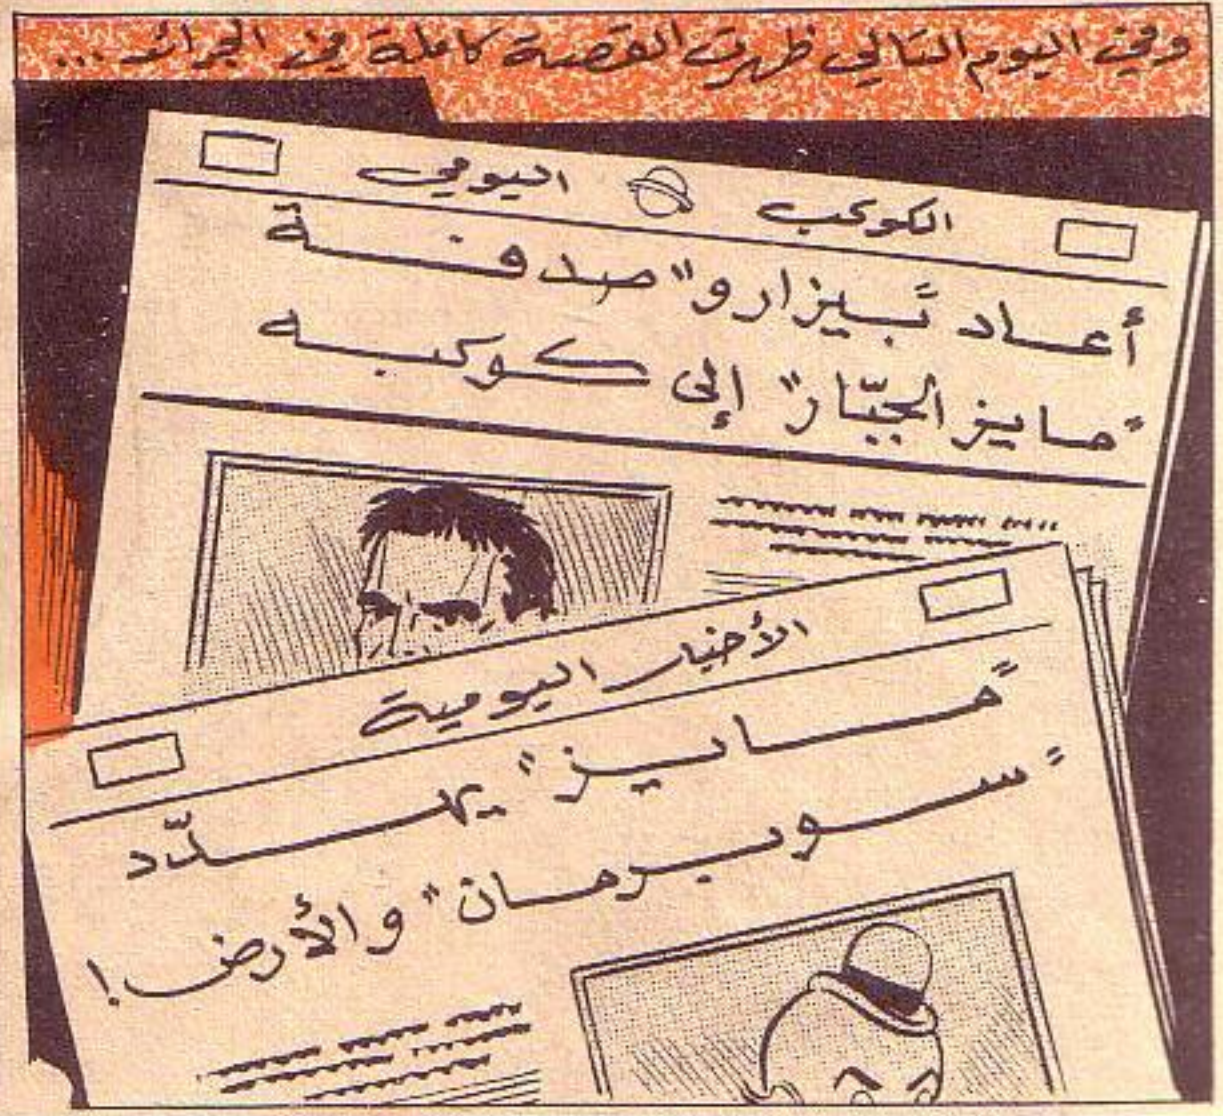 وفي اليوم التالي ظهرت القصة كاملة في الجرائد ...
الكوكب اليومي
أعاد "بيزارو" صدفة
"مايز الجبّار" إلى كوكبه
الأخبار اليومية
"مايز" يهدّد
"سوبرمان" والأرض!